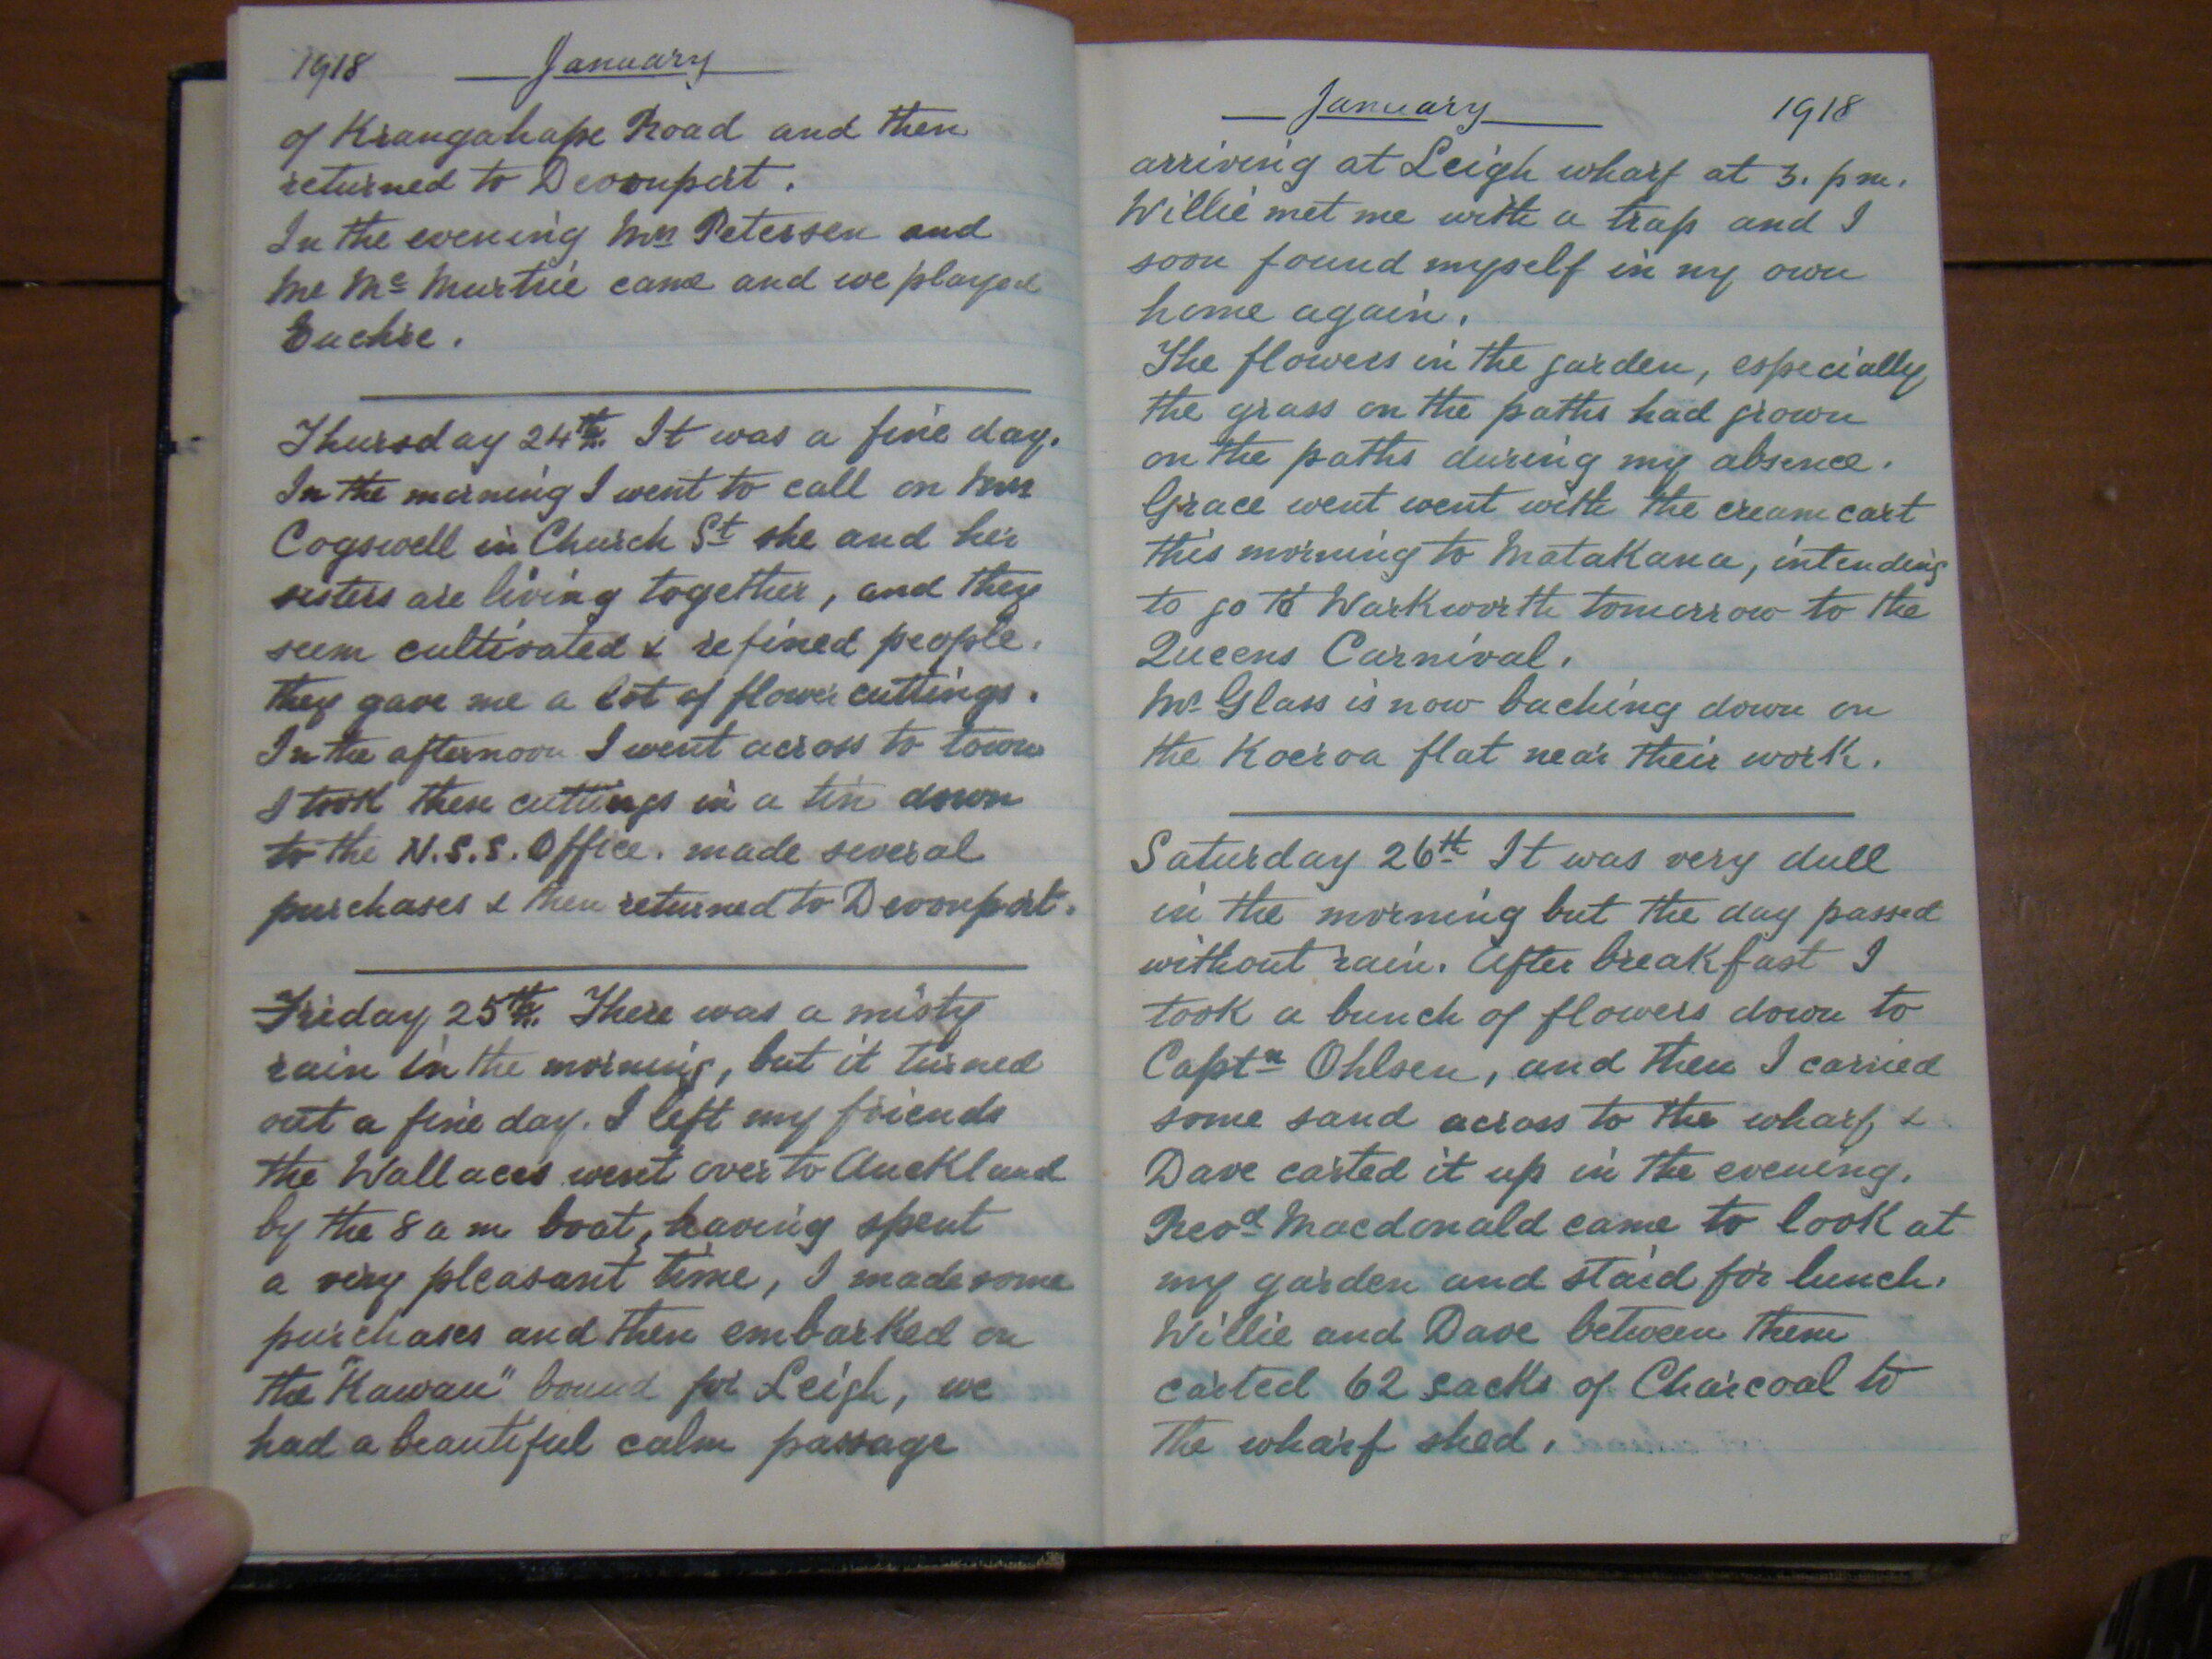 1918 January
of Krangahape Road and then
returned to Devonport.
In the evening Mrs Petersen and
Mr Mc Murtrie came and we played
Euchre.
Thursday 24th. It was a fine day.
In the morning I went to call on Mrs
Cogswell in Church St she and her
sisters are living together, and they
seem cultivated & refined people.
they gave me a lot of flower cuttings.
In the afternoon I went across to town
I took these cuttings in a tin down
to the N.S.S. Office. made several
purchases & then returned to Devonport.
Friday 25th. There was a misty
rain in the morning, but it turned
out a fine day. I left my friends
the Wallaces went over to Auckland
by the 8 am boat, having spent
a very pleasant time, I made some
purchases and then embarked on
the "Kawau" bound for Leigh, we
had a beautiful calm passage
January 1918
arriving at Leigh wharf at 3. pm.
Willie met me with a trap and I
soon found myself in my own
home again.
The flowers in the garden, especially
the grass on the paths had grown
on the paths during my absence.
Grace went went with the cream cart
this morning to Matakana, intending
to go to Warkworth tomorrow to the
Queens Carnival.
Mr Glass is now baching down on
the Koeroa flat near their work.
Saturday 26th It was very dull
in the morning but the day passed
without rain. After breakfast I
took a bunch of flowers down to
Captn Ohlsen, and then I carried
some sand across to the wharf &
Dave carted it up in the evening.
Revd Macdonald came to look at
my garden and staid for lunch.
Willie and Dave between them
carted 62 sacks of Charcoal to
the wharf shed.